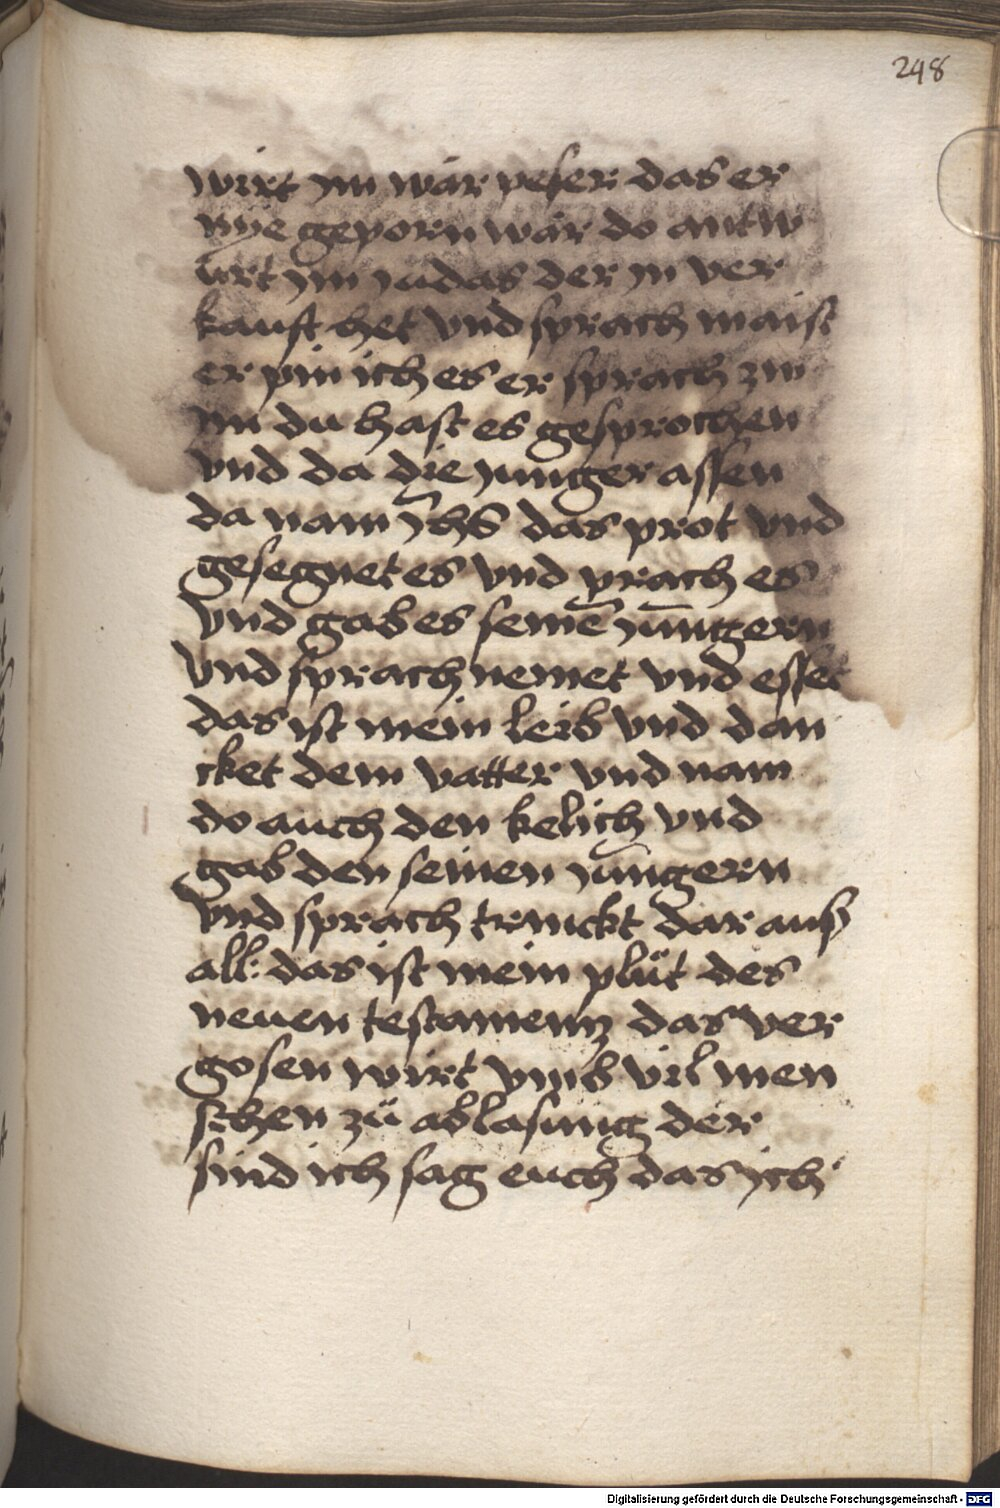 248
wirt ym wär peser das er
nye geporn wär do antw
urt ym yudas der in ver
kauft het vnd sprach maist
er pin ich es er sprach zw
ym du hast es gesprochen
vnd da die yunger assen
da nam yhs das prot vnd
gesegnet es vnd prach es
vnd gab es seinē yūngern
vnd sprach nemet vnd esset
das ist mein leib vnd dan
cket dem vatter vnd nam
do auch den kelich vnd
gab den seinen yungern
vnd sprach trinckt dar auß
all: das ist mein plüt des
neuen testamentz das ver
gosen wirt vmb vil men
schen zü ablasung der
sind ich sag euch das ich
Digitalisierung gefördert durch die Deutsche Forschungsgemeinschaft - DFG